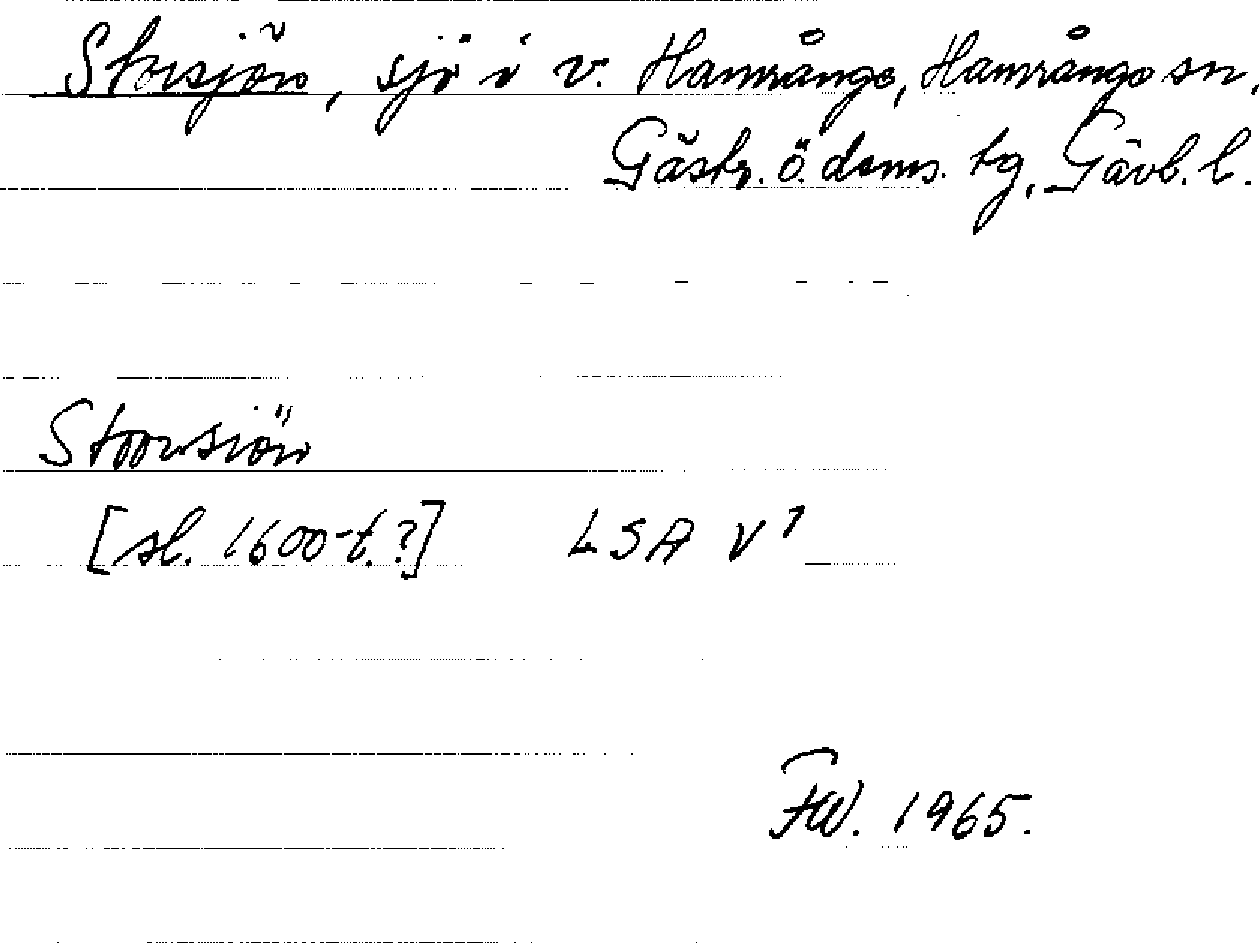 Storsjön, sjö i v. Hamrånge, Hamrånge sn,
Gästr. ö. doms. tg, Gävl. l.
Stoorsiön
[sl. 1600-t.?] LSA V 1
FW. 1965.